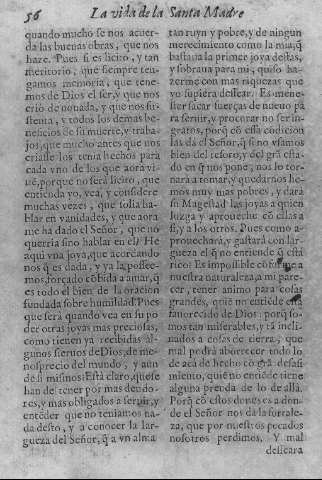 56 La vida de la Santa Madre
quando mucho se nos acuer-
da las buenas obras, que nos
haze. Pues si es licito, y tan
meritorio, que siempre ten-
gamos memoria, que tene-
mos de Dios el ser, y que nos
crio de nonada, y que nos su-
stenta, y todos los demas be-
neficios de su muerte, y traba-
jos, que mucho antes que nos
criasse los tenia hechos para
cada vno de los que aora vi-
uē, porque no serà licito, que
entienda yo, vea, y considere
muchas vezes, que solia ha-
blar en vanidades, y que aora
me ha dado el Señor, que no
querria sino hablar en el? He
aqui vna joya, que acordando
nos q̄ es dada, y ya la posse-
mos, forçado cōbida a amar, q̄
es todo el bien de la oracion
fundada sobre humildad. Pues
que serà quando vea en su po
der otras joyas mas preciosas,
como tienen ya recibidas al-
gunos sieruos de Dios, de me-
nosprecio del mundo, y aun
de si mismos: està claro, que se
han de tener por mas deudo-
res, y mas obligados a seruir, y
entēder que no teniamos na-
da desto, y a conocer la lar-
gueza del Señor, q̄ a vn alma
tan ruyn y pobre, y de ningun
merecimiento como la mia, q̄
bastaua la primer joya destas,
y sobraua para mi, quiso ha-
zerme con mas riquezas que
yo supiera dessear. Es menes-
ter sacar fuerças de nueuo pa
ra seruir, y procurar no ser in-
gratos, porq̄ cō essa cōdicion
las dà el Señor, q̄ si no vsamos
bien del tesoro, y del grā esta-
do en q̄ nos pone, nos lo tor-
narà a tomar, y quedarnos he-
mos muy mas pobres, y darà
su Magestad las joyas a quien
luzga y aprouechē cō ellas a
si, y a los otros. Pues como a-
prouecharà, y gastarà con lar-
gueza el q̄ no entiende q̄ està
rico? Es impossible cōforme a
nuestra naturaleza, a mi pare-
cer, tener animo para cosas
grandes, quiē no entiēde està
fauorecido de Dios: porq̄ so-
mos tan miserables, y tā incli-
nados a cosas de tierra, que
mal podrà aborrecer todo lo
de acà de hecho cō grā desasi-
miento, quiē no entiēde tiene
alguna prenda de lo de allà.
Porq̄ cō estos dones es a don-
de el Señor nos dà la fortale-
za, que por nuestros pecados
nosotros perdimos. Y mal
desseara